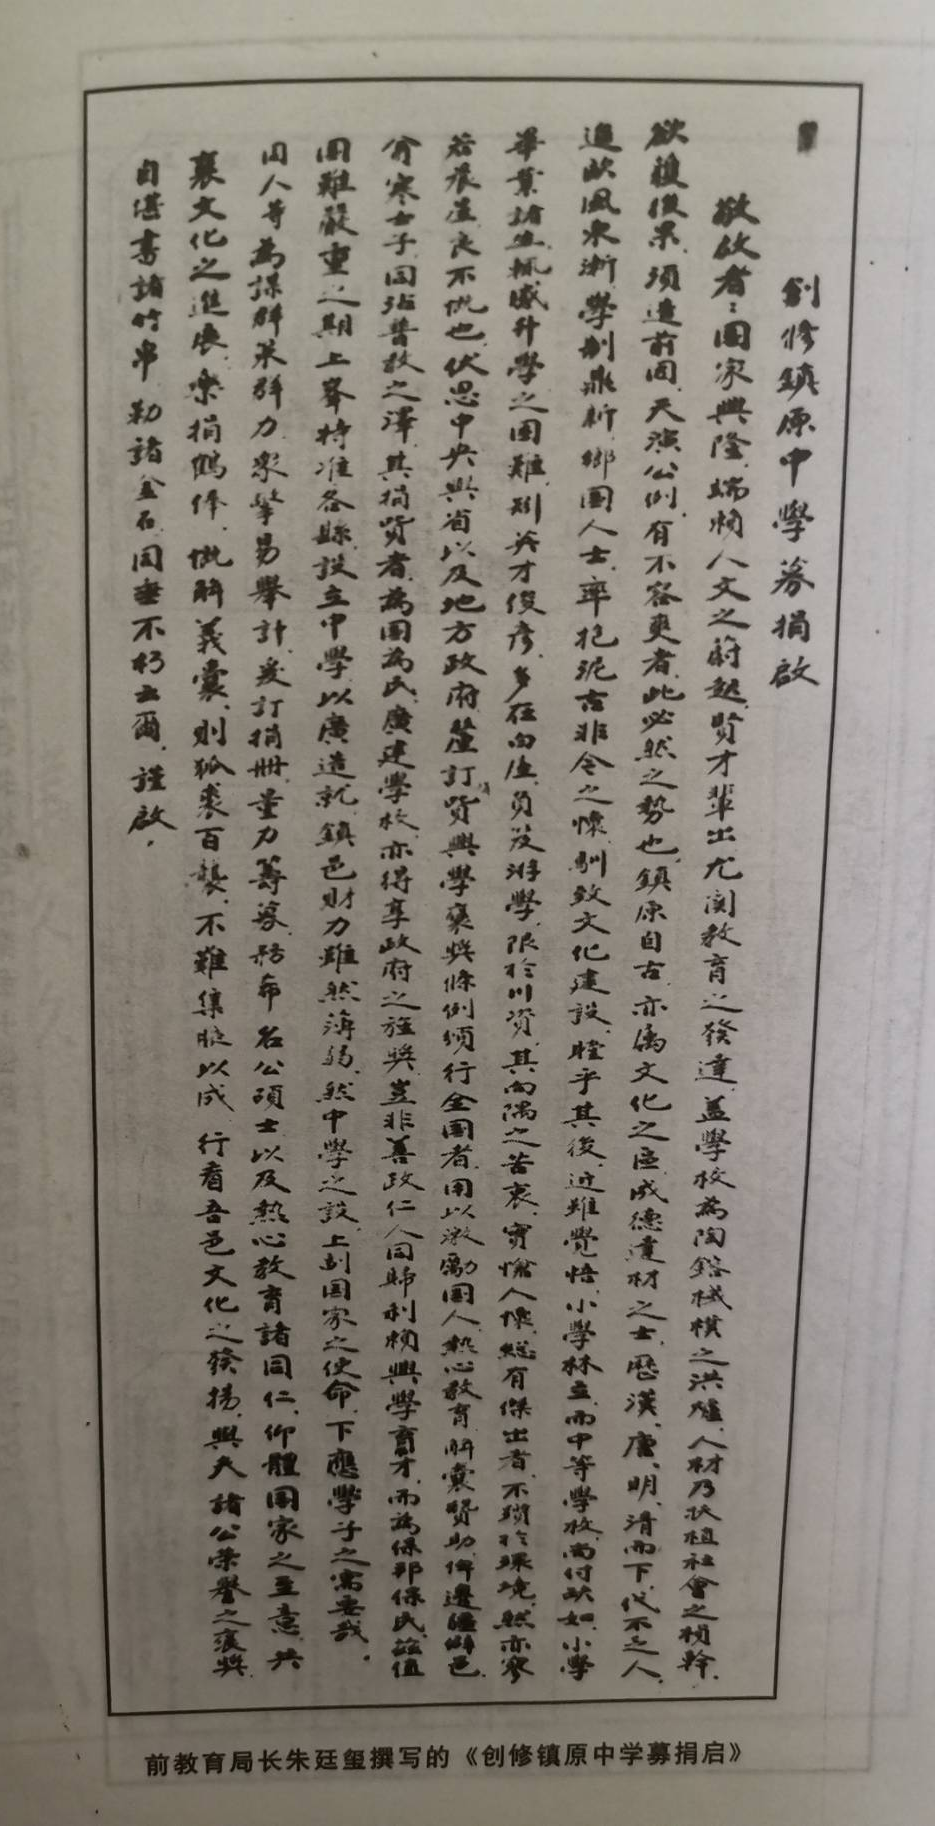 創修鎮原中學募捐啟
敬啟者：国家興隆，端賴人文之蔚起，賢才輩出，尤関教育之發達，蓋學校為陶鎔棫樸之洪爐，人材乃扶植社會之楨幹，
欲穫後果，須造前因，天演公例，有不容爽者，此必然之勢也，鎮原自古，亦属文化之區，成德達材之士，歷漢，唐，明，清而下，代不乏人，
進歐風東漸，學制鼎新，鄉国人士，率抱泥古非今之懷，馴致文化建設，瞠乎其後，近雖覺悟，小學林立，而中等學校，尚付缺如，小學
畢業諸生，輒感升學之困難，則英才俊彥，多在向隅，負笈游學，限於川资，其向隅之苦衷，實愴人懷，縱有傑出者，不躓於環境，然亦寥
若晨星，良不忱也，伏思中央與省以及地方政府，釐訂賀興學褒奖條例，頒行全国者，用以激勵国人，熱心教育，解囊贊助，俾邊疆僻邑
寒士子，同沾普教之澤，其捐资者，為国為民，廣建學校，亦得享政府之旌奖，豈非善政仁人，同歸利賴，興學育才，而為保邦保民，茲值
国難嚴重之期，上峯特准各縣，設立中學，以廣造就，鎮邑財力雖然薄弱，然中學之設，上副国家之使命，下應學子之需要哉，
同人等為謀群策群力，眾擎易舉計，爰訂捐冊，量力籌募，務希 名公碩士，以及熱心教育諸同仁，仰體国家之至意，共
襄文化之進展，樂捐鶴俸，慨解義囊，則狐裘百襲，不難集腋以成，行看吾邑文化之發揚，與夫諸公榮譽之褒奬，
自堪書諸竹帛，勒諸金石，同垂不朽云爾，謹啟，
前教育局长朱廷玺撰写的《创修镇原中学募捐启》